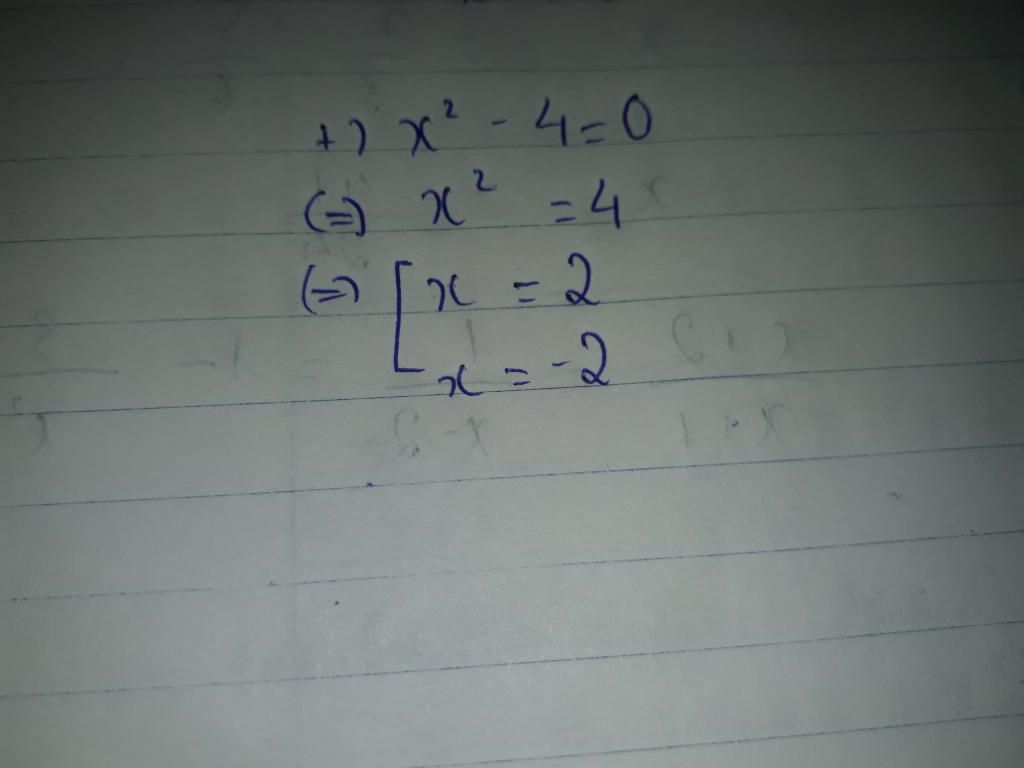 +) x² - 4 = 0
(=) x² = 4
(=) [ x = 2
x = -2